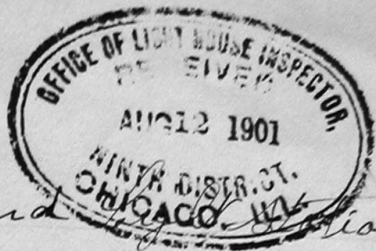 OFFICE OF LIGHT HOUSE INSPECTOR,
RECEIVED
AUG 12 1901
NINTH DISTRICT,
CHICAGO, ILL.